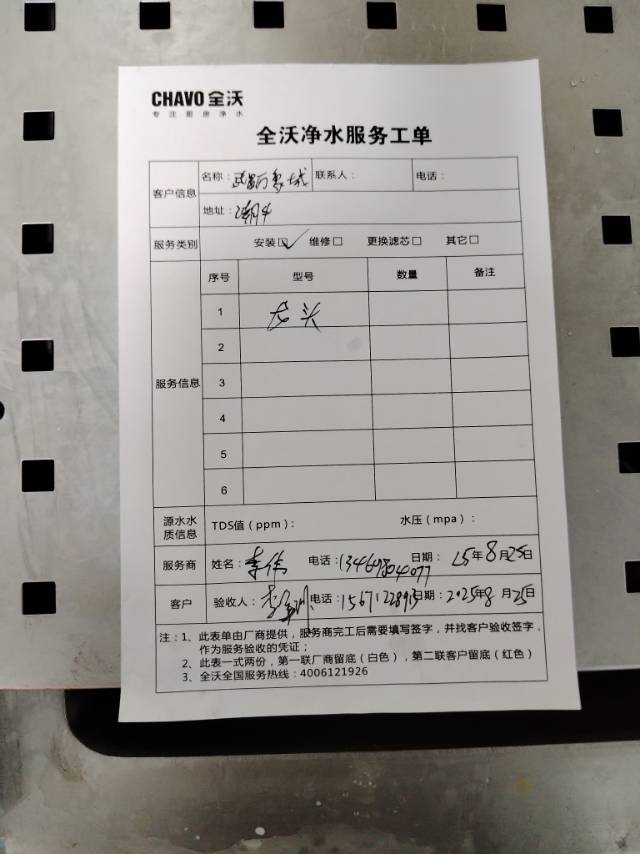 CHAVO 全沃
专注厨房净水
全沃净水服务工单
客户信息 名称： 联系人： 电话：
地址：
服务类别 安装☑ 维修□ 更换滤芯□ 其它□
服务信息 序号 型号 数量 备注
1 龙头
2
3
4
5
6
源水水质信息 TDS值（ppm）： 水压（mpa）：
服务商 姓名：李伟 电话： 日期：25年8月25日
客户 验收人：李 电话：15671228915 日期：2025年8月25日
注：1、此表单由厂商提供，服务商完工后需要填写签字，并找客户验收签字，
作为服务验收的凭证；
2、此表一式两份，第一联厂商留底（白色），第二联客户留底（红色）
3、全沃全国服务热线：4006121926